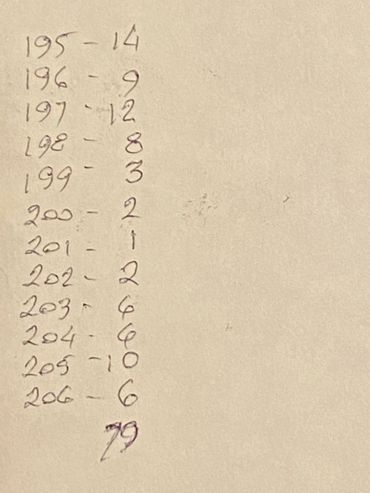 195 - 14
196 - 9
197 - 12
198 - 8
199 - 3
200 - 2
201 - 1
202 - 2
203 - 6
204 - 6
205 - 10
206 - 6
79